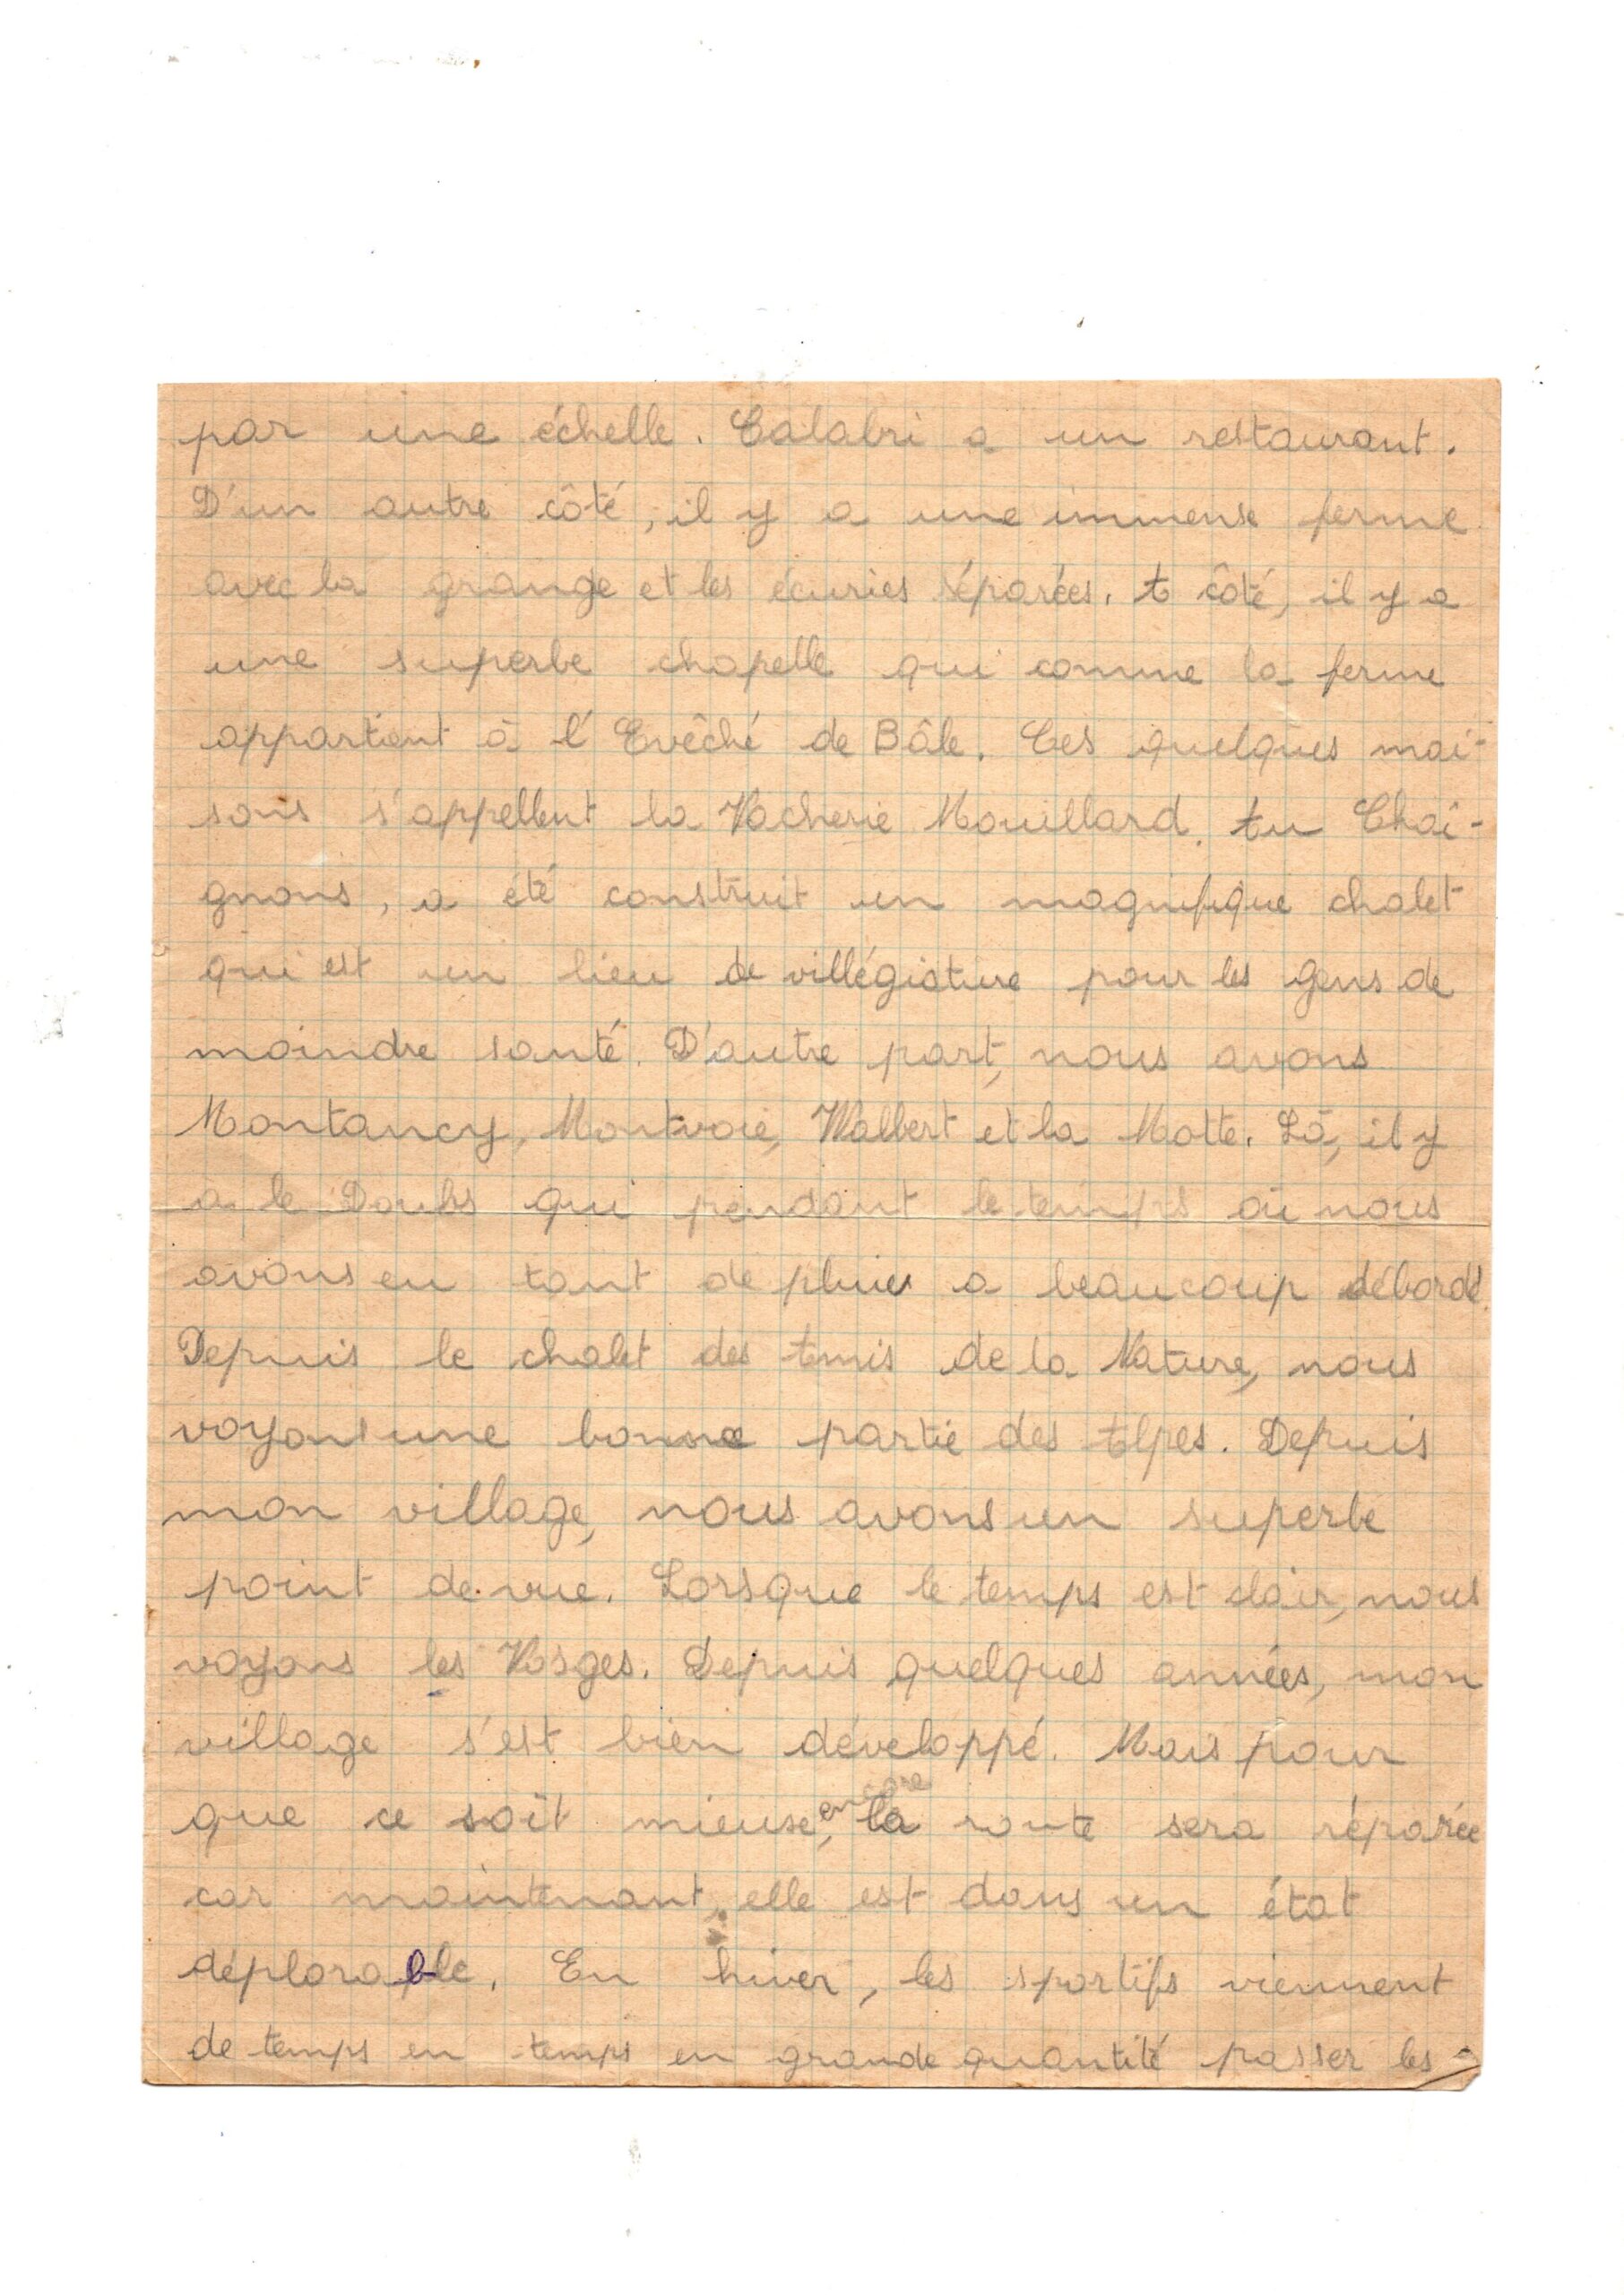 par une échelle. Calabri a un restaurant.
D'un autre côté, il y a une immense ferme
avec la grange et les écuries séparées. A côté, il y a
une superbe chapelle qui comme la ferme
appartient à l'Evêché de Bâle. Ces quelques mai-
sons s'appellent la Vacherie Mouillard. Au Chai-
gnons, a été construit un magnifique chalet
qui est un lieu de villégiature pour les gens de
moindre santé. D'autre part, nous avons
Montancy, Montvoie, Valbert et la Motte. Là, il y
a le Doubs qui pendant le temps où nous
avons eu tant de pluies a beaucoup débordé.
Depuis le chalet des Amis de la Nature, nous
voyons une bonne partie des Alpes. Depuis
mon village, nous avons un superbe
point de vue. Lorsque le temps est clair, nous
voyons les Vosges. Depuis quelques années, mon
village s'est bien développé. Mais pour
que ce soit mieux encore, la route sera réparée
car maintenant, elle est dans un état
déplorable. En hiver, les sportifs viennent
de temps en temps en grande quantité passer les